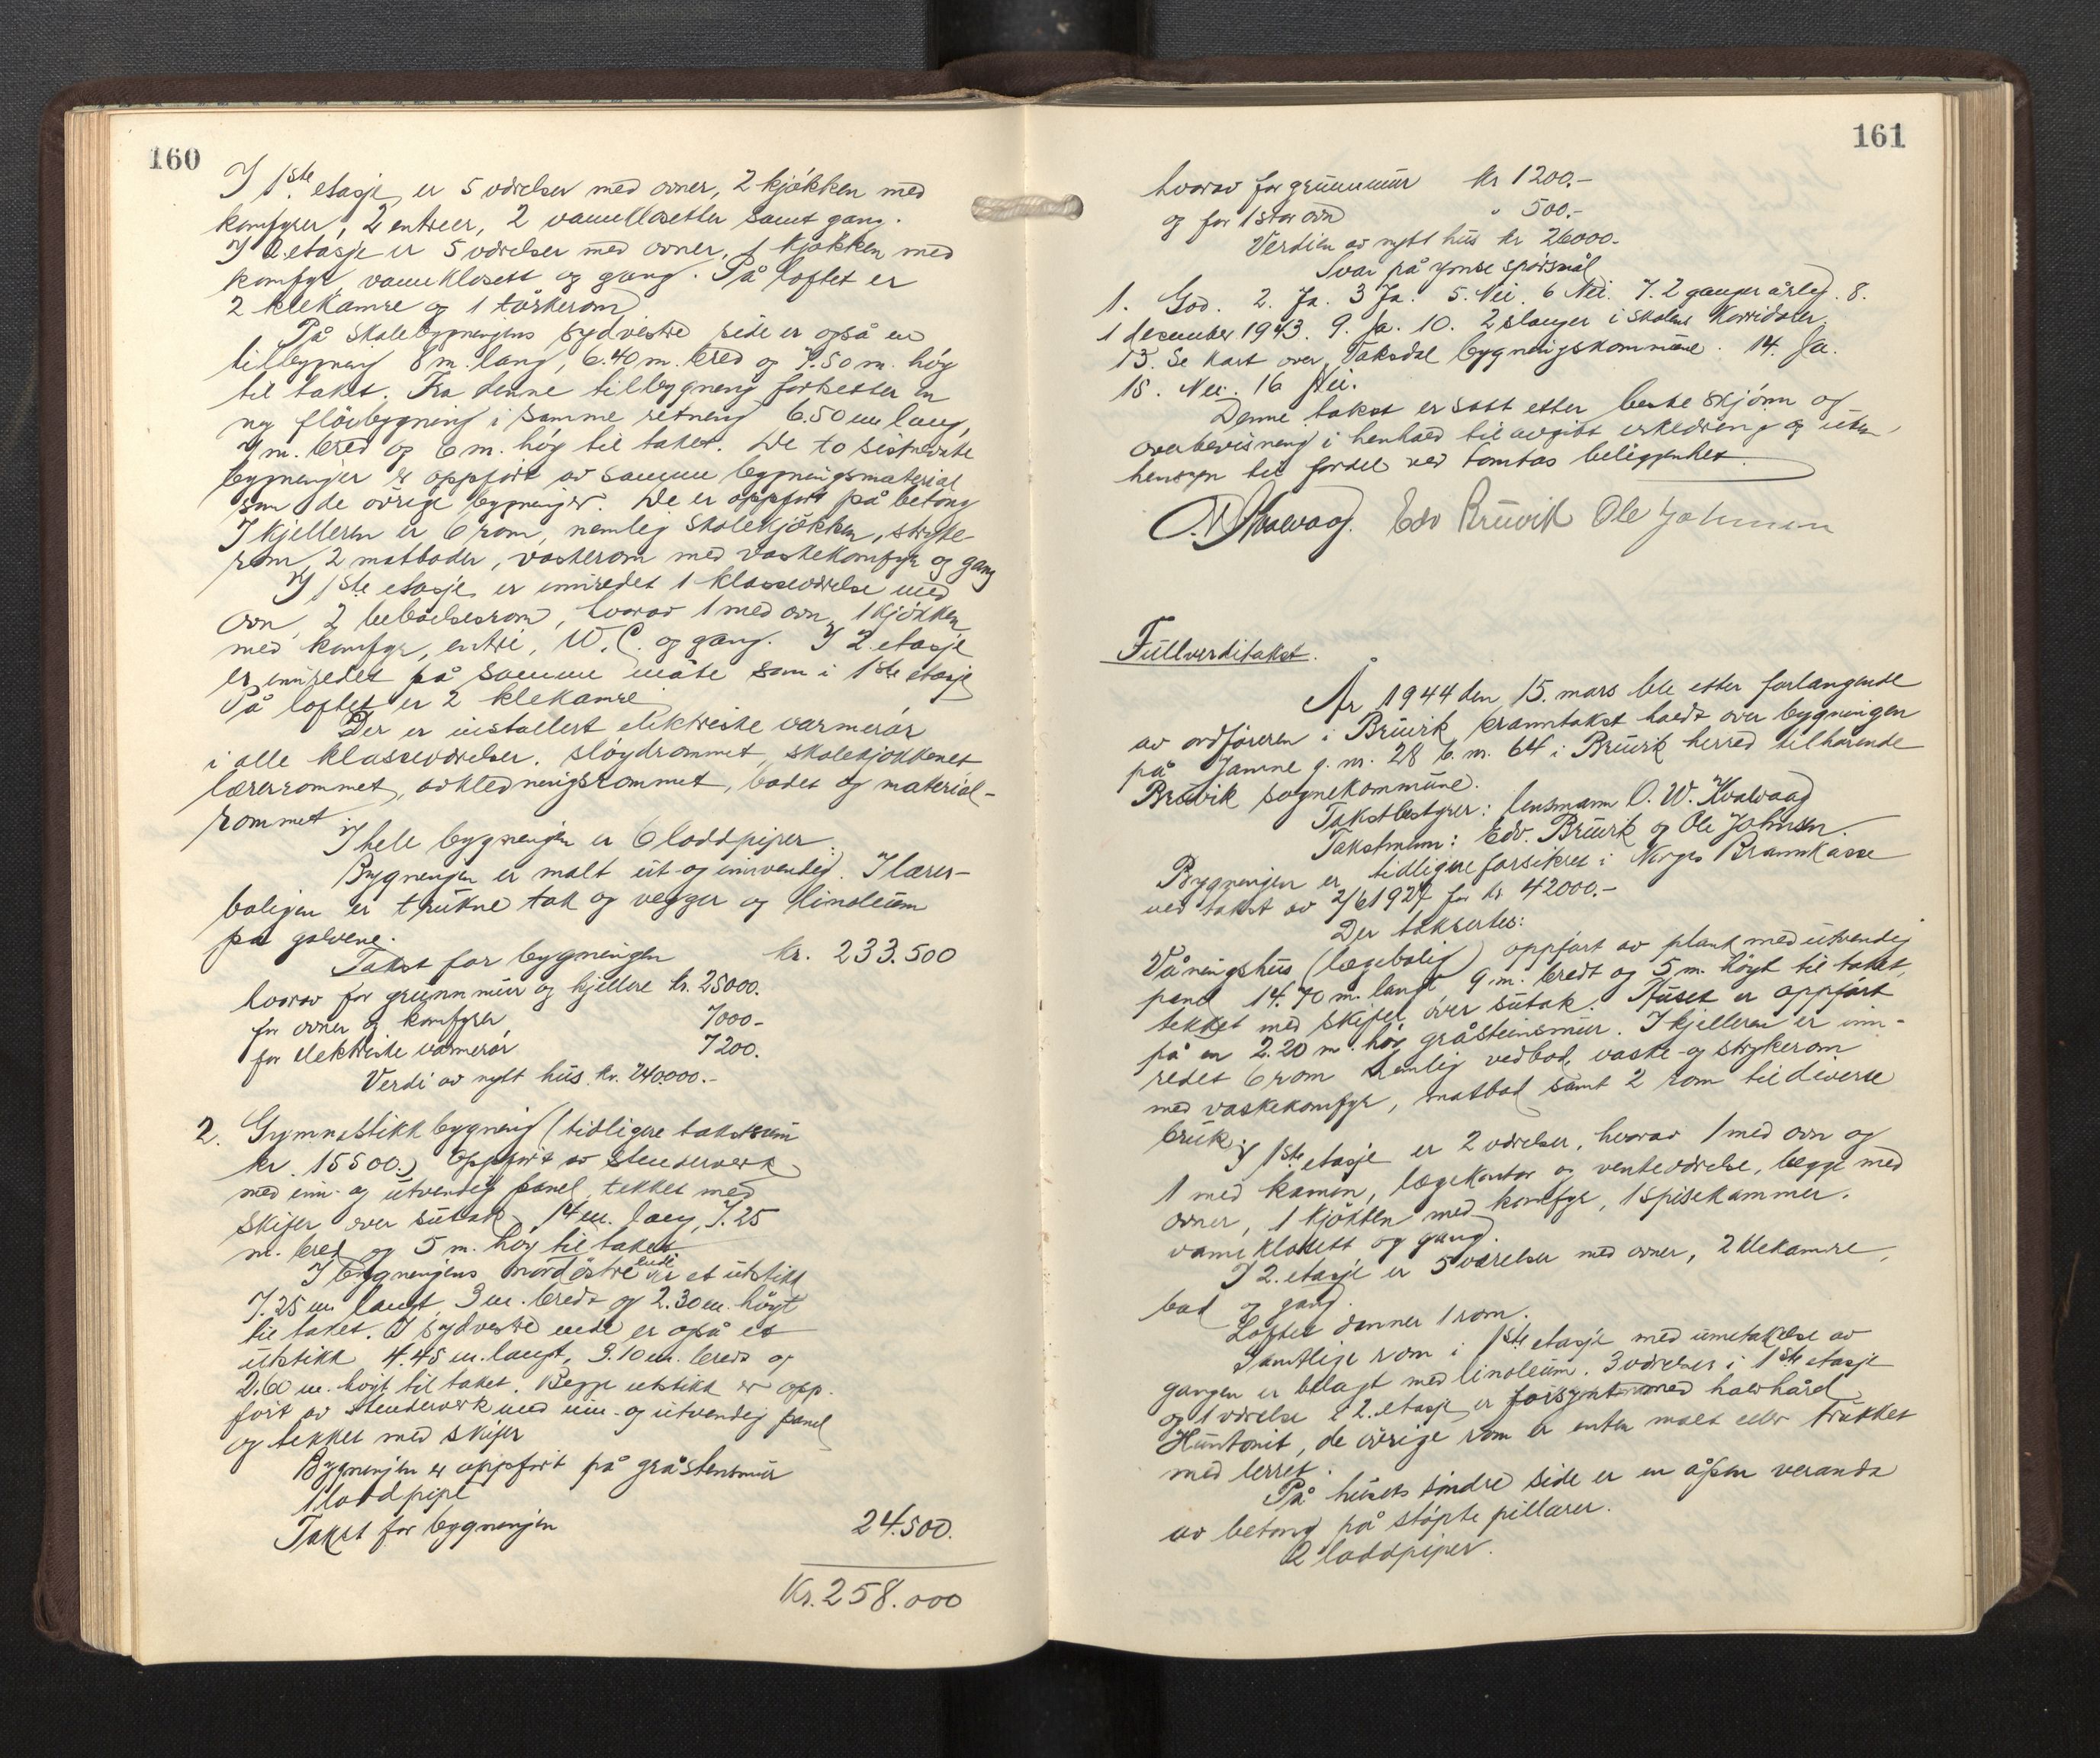 160
I 1ste etasje er 5 værelser med ovner, 2 kjøkken med
komfyrer, 2 entreer, 2 vannklosetter samt gang.
I 2 etasje er 5 værelser med ovner, 1 kjøkken med
komfyr, vannklosett og gang. På loftet er
2 klekamre og 1 tørkerom
På skolebygningens sydvestre side er også en
tilbygning 8 m. lang, 6.40 m. bred og 7.50 m. høg
til taket. Fra denne tilbygning fortsetter en
ny fløibygning i samme retning 6.50 m lang,
7 m. bred og 6 m. høg til taket. De to sistnevnte
bygninger er oppført av samme bygningsmaterial
som de øvrige bygninger. De er oppført på betong
I kjelleren er 6 rom, nemlig skolekjøkken, stryke
rom, 2 matboder, vaskerom med vaskekomfyr og gang
I 1ste etasje er innredet 1 klasseværelse med
ovn, 2 beboelsesrom, hvorav 1 med ovn, 1 kjøkken
med komfyr, entre, W.C. og gang. I 2 etasje
er innredet på samme måte som i 1ste etasje
På loftet er 2 klekamre
Der er installert elektriske varmerør
i alle klasseværelser, sløydrommet, skolekjøkkenet
lærerrommet, avkledningsrommet, badet og material-
rommet
I hele bygningen er 6 loddpiper.
Bygningen er malt ut- og innvendig. I lærer-
boligen er trukne tak og vegger og linoleum
på golvene.
Takst for bygningen kr. 233.500
hvorav for grunnmur og kjellere kr. 25000.
for ovner og komfyrer 7000-
for elektriske varmerør 7200.
Verdi av nytt hus. kr. 240.000.-
2. Gymnastikkbygning (tidligere takstsum
kr. 15500.) Oppført av stenderverk
med inn- og utvendig panel, tekket med
skifer over sutak, 14 m. lang, 7.25
m. bred og 5 m. høg til taket
I bygningens nordøstre ende er et utstikk
7.25 m. langt, 3 m. bredt og 2.30 m. høgt
til taket. I sydvestre ende er også et
utstikk 4.45 m. langt, 3.10 m. bredt og
2.60 m. høgt til taket. Begge utstikk er opp-
ført av stenderverk med inn- og utvendig panel
og tekket med skifer
Bygningen er oppført på gråstensmur
1 loddpipe
Takst for bygningen 24.500.
Kr. 258.000
161
hvorav for grunnmur kr 1200.-
og for 1 stor ovn " 500.-
Verdien av nytt hus kr. 26000-
Svar på ymse spørsmål
1. God. 2. Ja. 3 Ja. 5. Nei. 6 Nei. 7. 2 ganger årleg. 8.
1 desember 1943. 9. Ja. 10. 2 slanger i skolens korridorer.
13. Se kart over Vaksdal bygningskommune. 14. Ja.
15. Nei. 16 Nei.
Denne takst er satt etter beste skjønn og
overbevisning i henhold til avgitt erklæring og uten
hensyn til fordel ved tomtas beliggenhet.
O. W. Hvalvaag. Edv Bruvik Ole Johnsen
Fullverditakst.
År 1944 den 15. mars ble etter forlangende
av ordføreren i Bruvik branntakst holdt over bygningen
på Jamne g. nr. 28 b. nr. 64 i Bruvik herred tilhørende
Bruvik sognekommune.
Takstbestyrer: lensmann O. W. Hvalvaag
Takstmenn: Edv. Bruvik og Ole Johnsen.
Bygningen er tidligere forsikret i Norges Brannkasse
ved takst av 2/6 1927 for kr 42000.-
Der takseres:
Våningshus (lægebolig) oppført av plank med utvendig
panel 14.70 m. langt 9 m. bredt og 5 m. høgt til taket,
tekket med skifer over sutak. Huset er oppført
på en 2.20 m. høg gråsteinsmur. I kjelleren er inn-
redet 6 rom nemlig vedbod, vaske- og strykerom
med vaskekomfyr, matbod samt 2 rom til diverse
bruk.
I 1ste etasje er 2 værelser, hvorav 1 med ovn og
1 med kamin, lægekontor og venteværelse, begge med
ovner, 1 kjøkken med komfyr, 1 spisekammer.
vannklosett og gang.
I 2. etasje er 5 værelser med ovner, 2 klekamre,
bad og gang.
Loftet danner 1 rom.
Samtlige rom i 1ste etasje med unntakelse av
gangen er belagt med linoleum. 3 værelser i 1ste etasje
og 1 værelse i 2. etasje er forsynt med halvhård
Huntonit, de øvrige rom er enten malt eller trukket
med lerret.
På husets søndre side er en åpen veranda
av betong på støpte pillarer.
2 loddpiper.